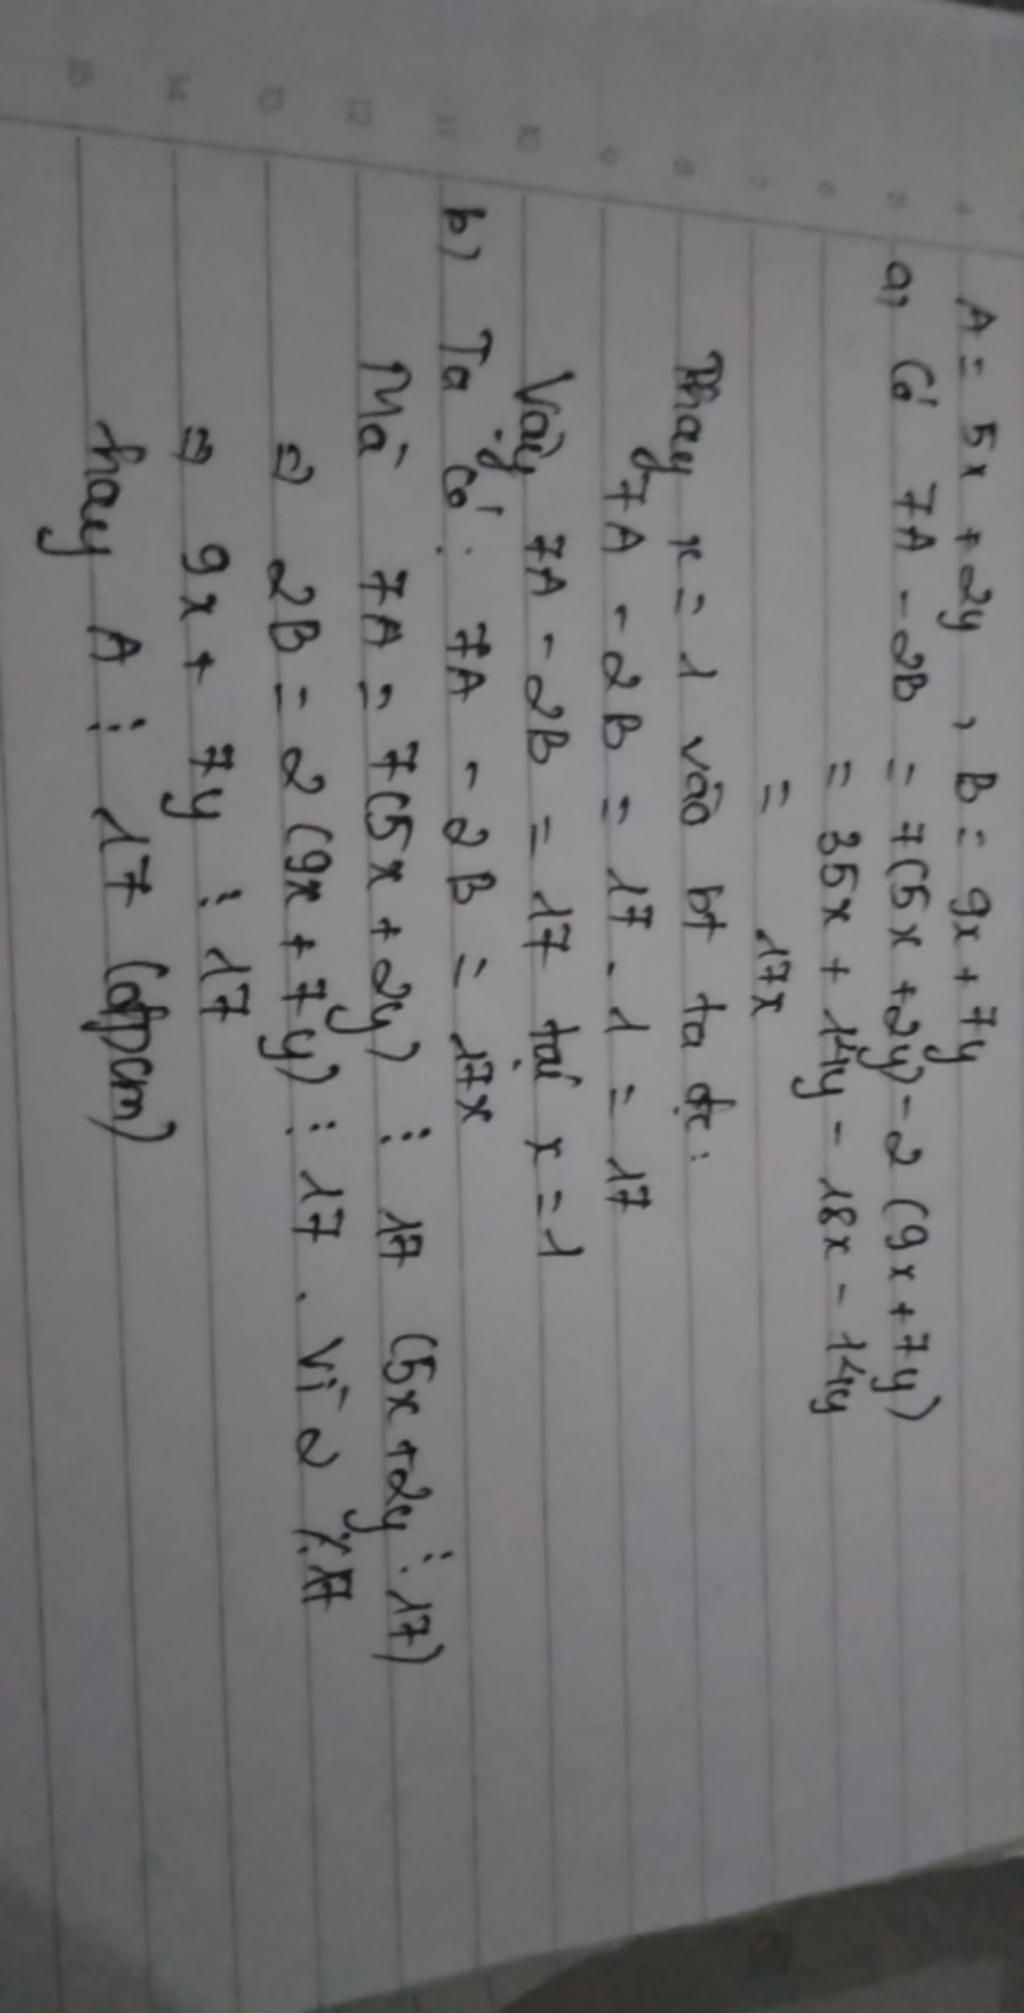 A = 5x + 2y , B = 9x + 7y
a, Có 7A - 2B = 7(5x + 2y) - 2 (9x + 7y)
= 35x + 14y - 18x - 14y
= 17x
Thay x = 1 vào bt ta đc:
7A - 2B = 17 . 1 = 17
Vậy 7A - 2B = 17 tại x = 1
b) Ta có : 7A - 2B = 17x
Mà 7A = 7(5x + 2y) ⋮ 17 (5x + 2y ⋮ 17)
⇒ 2B = 2 (9x + 7y) ⋮ 17 . Vì 2 ⋮̸ 17
⇒ 9x + 7y ⋮ 17
hay A ⋮ 17 (đpcm)
4
5
6
7
8
9
10
11
12
13
14
15